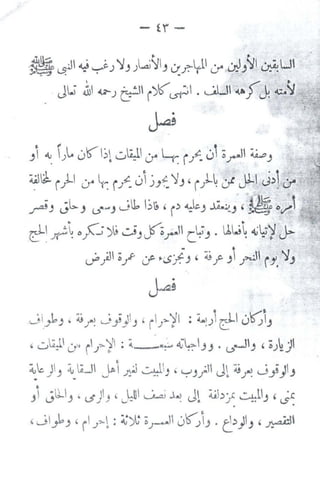 — ٤٣ —
السابقين الأولين من المهاجرين والأنصار ولا رغب فيه النبي ﷺ
لأمته بل كرهه السلف . انتهى كلام الشيخ رحمه الله تعالى
فصل
وصفة العمرة أن يحرم بها من الميقات إذا كان ماراً به أو
من أدنى الحل ممن بالحرم ، ولا يجوز أن يحرم بها من الحرم لمخالفة
أمره ﷺ ، وينعقد وعليه دم ، فاذا طاف وسعى وحلق وقصر
حل لإتيانه بأفعالها . وتباح العمرة كل وقت فلا تكره بأشهر الحج
ولا يوم النحر أو عرفة ، وتجزىء عن عمرة الفرض
فصل
وأركان الحج أربعة : الإحرام ، والوقوف بعرفة ، وطواف
الزيارة ، والسعى . وواجباته سبعة : الإحرام من الميقات ،
والوقوف بعرفة إلى الغروب ، والمبيت لغير أهل السقاية والرعاية
بمنى ، والمبيت بمزدلفة إلى بعد نصف الليل ، والرمى ، والحلق أو
التقصير ، والوداع . وأركان العمرة ثلاثة : إحرام ، وطواف ،